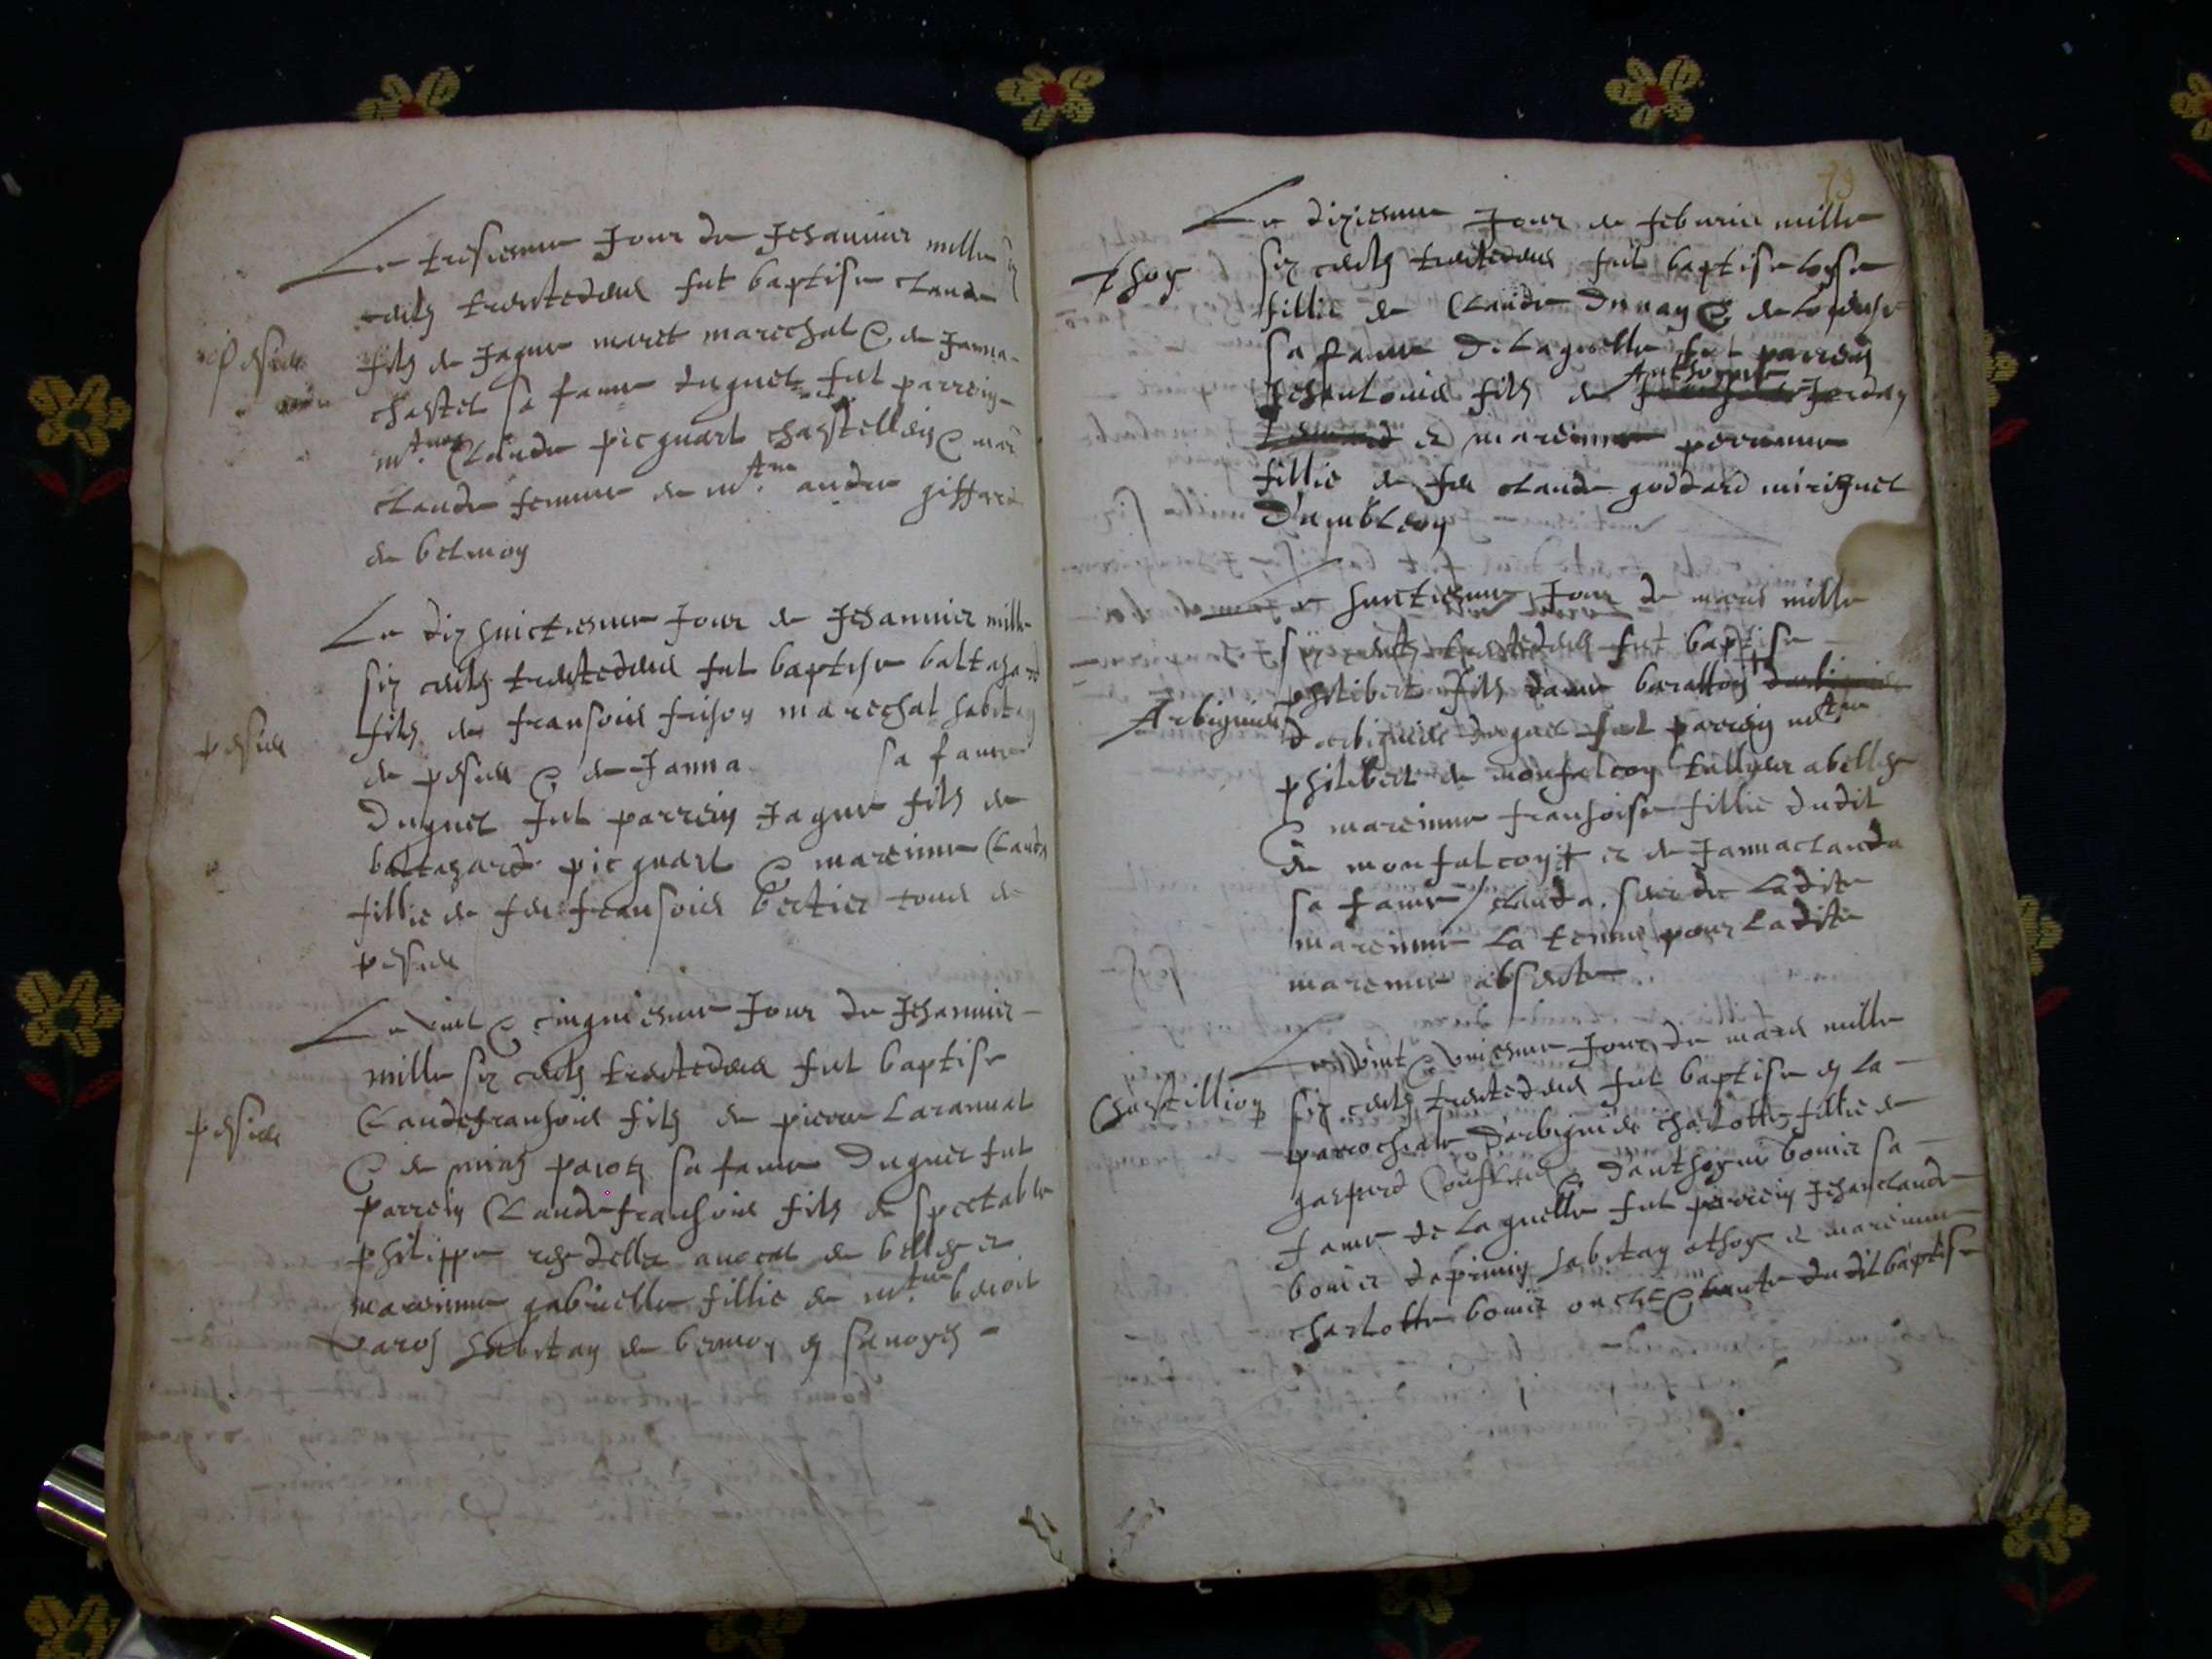 Le tresiesme Jour de Jehanvier mille six
cents trentedeux fut baptise claude
pesieu
fils de Jaque maret marechal & de Janna
chastel sa fame duquel fut parrein
mre Claude picquart chastellein &
claude femme de mre andre giffard
de belmon
Le dixhuictiesme Jour de Jehanvier mille
six cents trentedeux fut baptise baltazard
fils de fransois frison marechal habitan
pesieu
de pesieu & de Janna sa fame
Duquel fut parrein Jaque fils de
baltazard picquart & mareinne Clauda
fillie de feu fransois bertier tous de
pesieu
Le vint & cinquiesme Jour de Jehanvier
mille six cents trentedeux fut baptise
pesieu
Claudefransois fils de pierre Laranval
& de sa fame Duquel fut
parrein Claudefransois fils de spectable
philippe avocat de belley et
mareinne gabrielle fillie de mtre benoit
habitan de en savoye
79
Le diziesme Jour de feburier mille
Thoy
six cents trentedeux fut baptise loyse
fillie de Claude Dunay & de
sa fame De Laquelle fut parrein
Jehanlouis fils de Anthoyne Jordan
et mareinne perrenne
fillie de feu claude goddard miriguet
Dambleon
Le huictiesme Jour de mars mille
six cents trentedeux fut baptise
philibert fils dame baratton
Arbignieu
darbignieu duquel fut parrein mtre
philibert de monfalcon a belley
& mareinne fransoise fillie dudit
de monfalcon et de Jannaclauda
sa fame / clauda. seur de Ladite
mareinne La tenue pour Ladite
mareinne absente
Le vint & uniesme Jour de mars mille
Chastillion
six cents trentedeux fut baptise en La
parrochiale Darbignieu charlotte fillie de
gaspard & Danthoyne bovier sa
fame de Laquelle fut parrein Jehanclaude
bovier habitan a thoy et mareinne
charlotte bovier oncle & tante dudit baptise